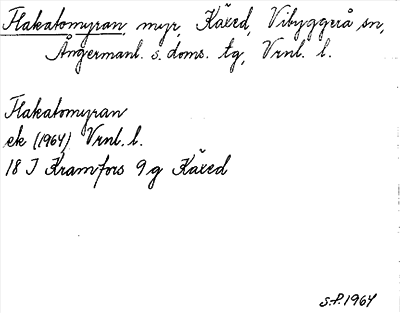 Flakatomyran, myr, Käxed, Vibyggerå sn,
Ångermanl. s. doms. tg, Vrnl. l.
Flakatomyran
ek (1964) Vrnl. l.
18 J Kramfors 9 g Käxed
S.P. 1964